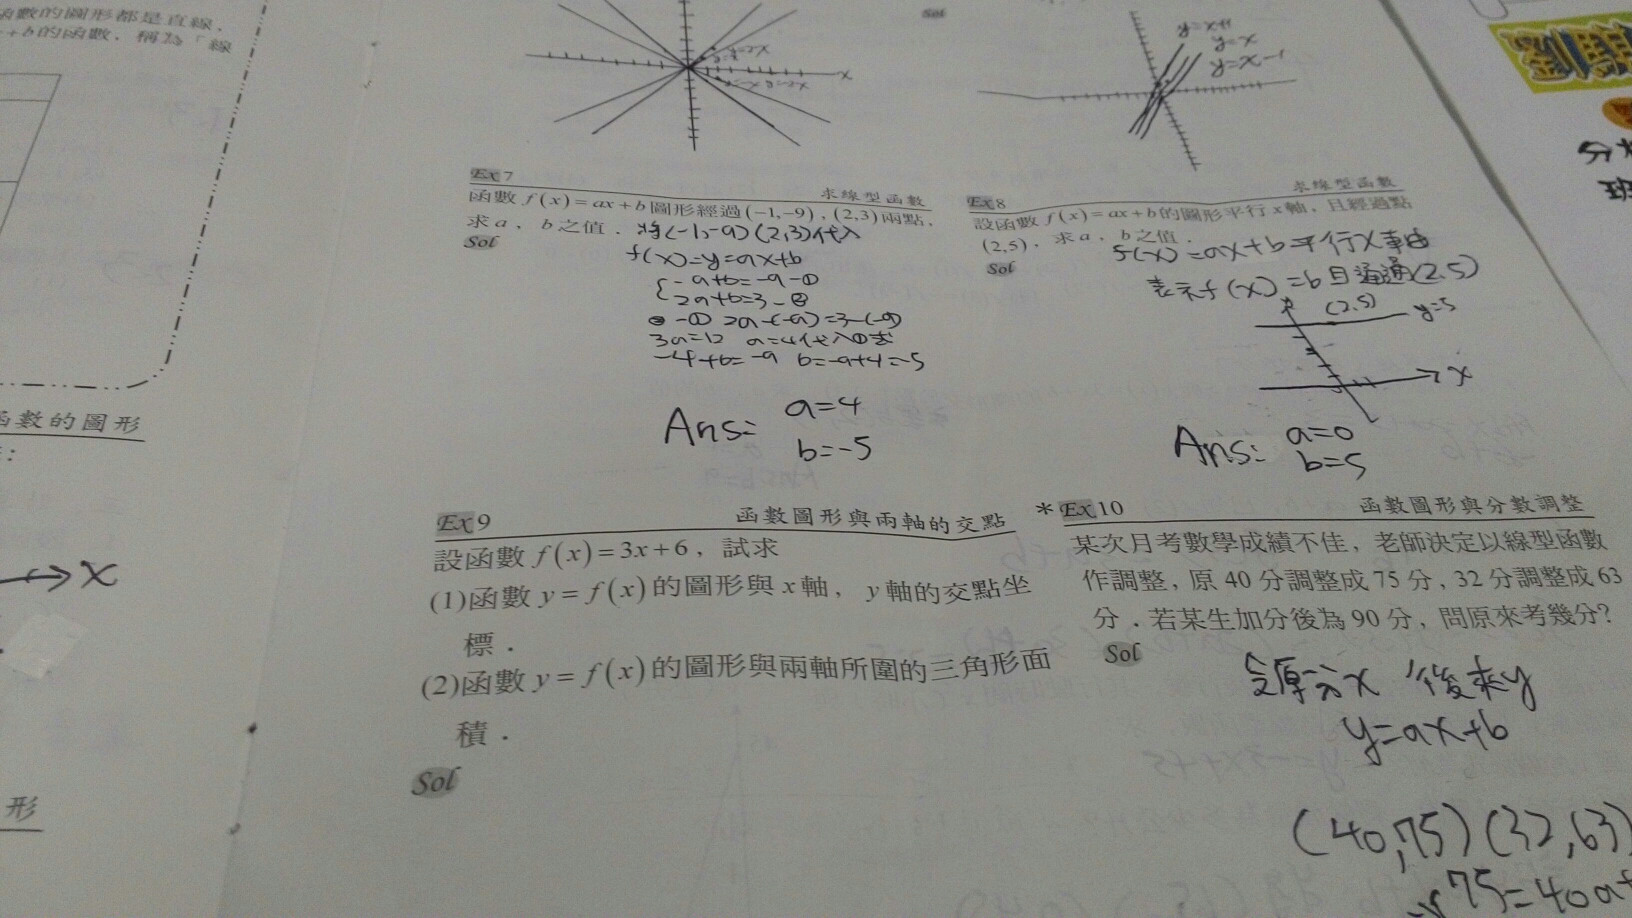 函數的圖形都是直線.
+b的函數.稱為「線
函數的圖形
:
x
形
x
Sol
y=x
y=x-1
Ex 7
求線型函數
函數 f(x)=ax+b圖形經過(-1,-9),(2,3)兩點,
求a,b之值.將(-1,-9)(2,3)代入
Sol
f(x)=y=ax+b
-a+b=-9-①
2a+b=3-②
-① 2a-(-a)=3-(-9)
3a=12 a=4代入①式
-4+b=-9 b=-9+4=-5
Ans:
a=4
b=-5
Ex 8
求線型函數
設函數 f(x)=ax+b的圖形平行x軸,且經過點
(2,5),求a,b之值.
Sol
f(x)=ax+b平行x軸
表示f(x)=b且通過(2.5)
(2.5)
y=5
x
Ans:
a=0
b=5
Ex 9
函數圖形與兩軸的交點
設函數 f(x)=3x+6,試求
(1)函數 y=f(x)的圖形與x軸,y軸的交點坐
標.
(2)函數 y=f(x)的圖形與兩軸所圍的三角形面
積.
Sol
*Ex 10
函數圖形與分數調整
某次月考數學成績不佳,老師決定以線型函數
作調整,原40分調整成75分,32分調整成63
分.若某生加分後為90分,問原來考幾分?
Sol
原分x 後來y
y=ax+b
(40,75)(32,63)
75=40a+
分
班